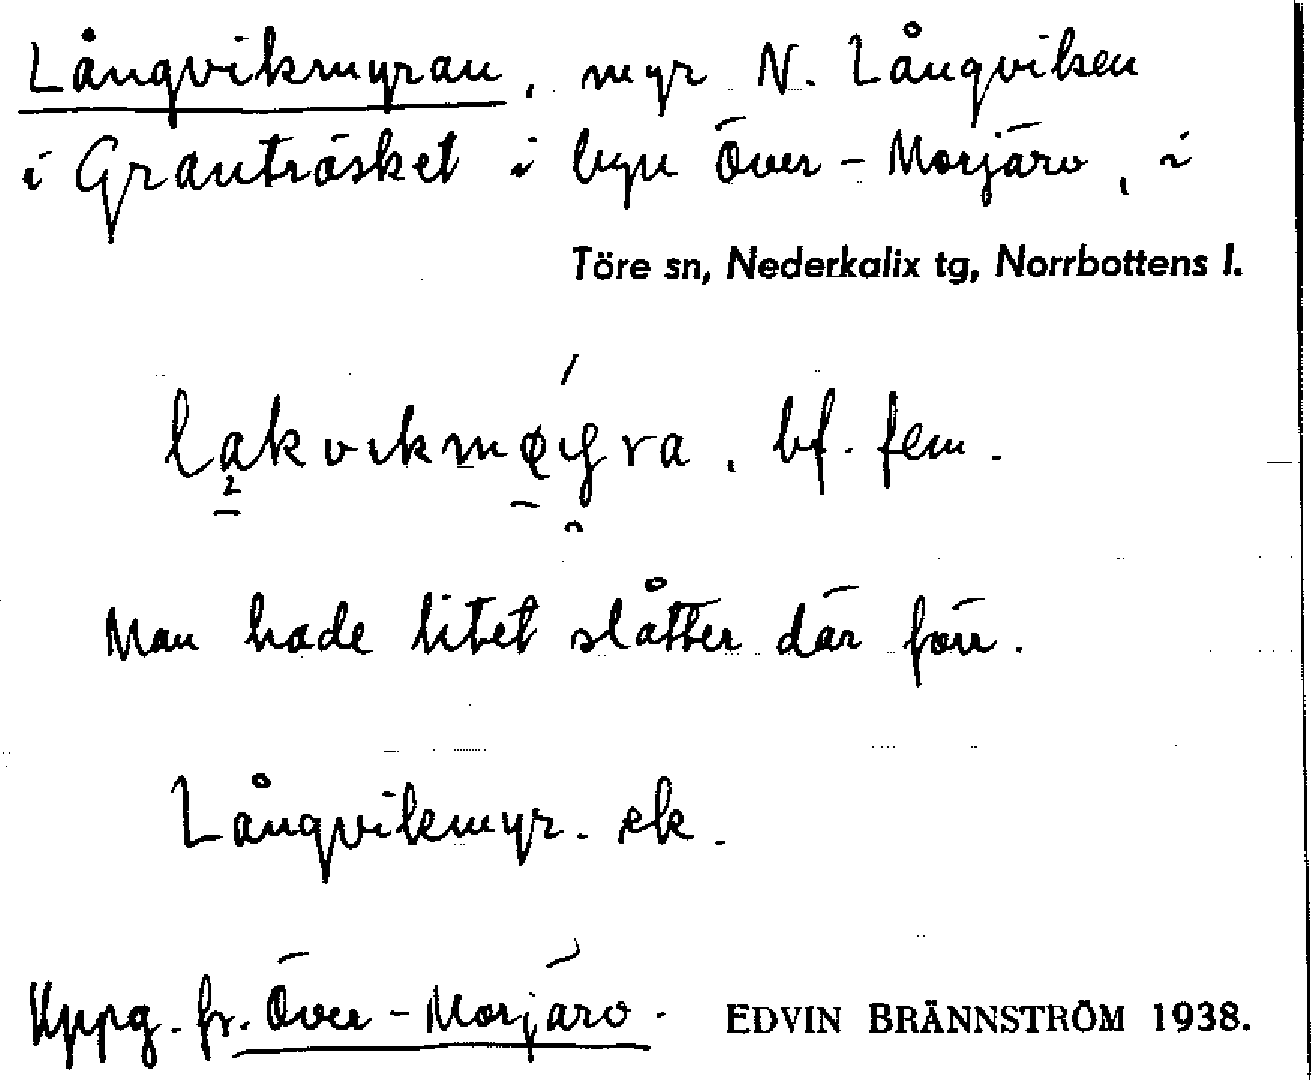 Långvikmyran, myr N. Långviken
i Granträsket i byn Över-Morjärv, i
Töre sn, Nederkalix tg, Norrbottens l.
bf. fem.
Man hade litet slåtter där förr.
Långvikmyr. ek.
Uppg. fr. Över-Morjärv.
EDVIN BRÄNNSTRÖM 1938.